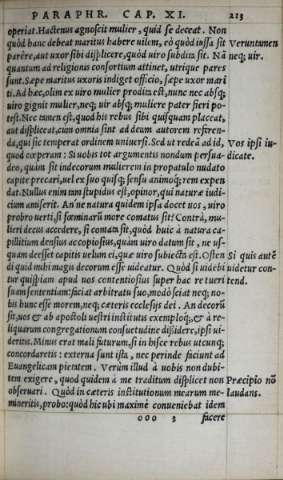 PARAPHR. CAP. XI. 213
operiat. Hactenus agnoscit mulier, quid se deceat. Non
quòd hanc debeat maritus habere uilem, eò quòd iussa sit Veruntamen
parêre, aut uxor sibi displicere, quòd uiro subdita sit. Nã neq; uir.
quantum ad religionis consortium attinet, utrique pares
sunt. Sæpe maritus uxoris indiget officio, sæpe uxor mari
ti. Ad hæc, olim ex uiro mulier prodita est, nunc nec absq;
uiro gignit mulier, neq; uir absq; muliere pater fieri po-
test. Nec tamen est, quod his rebus sibi quisquam placeat,
aut displiceat, cum omnia sint ad deum autorem referen-
da, qui sic temperat ordinem uniuersi. Sed ut redeã ad id, Vos ipsi iu-
quod cœperam: Si uobis tot argumentis nondum persua- dicate.
deo, quàm sit indecorum mulierem in propatulo nudato
capite precari, uel ex suo quisq; sensu animoq; rem expen
dat. Nullus enim tam stupidus est, opinor, qui naturæ iudi-
cium amiserit. An'ne natura quidem ipsa docet uos, uiro
probro uerti, si fœminarũ more comatus sit? Contrà, mu-
lieri decus accedere, si comata sit, quòd huic à natura ca-
pillitium densius ac copiosius, quàm uiro datum sit, ne us-
quam deesset capitis uelum ei, quæ uiro subiecta est. Osten Si quis autẽ
di quid mihi magis decorum esse uideatur. Quòd si uidebi uidetur con-
tur quispiam apud uos contentiosius super hac re tueri tend.
suam sententiam: faciat arbitratu suo, modò sciat neq; no-
bis hunc esse morem, neq; cæteris ecclesijs dei. An decorũ
sit, uos & ab apostoli uestri institutis exemploq;, & à re-
liquarum congregationum consuetudine dissidere, ipsi ui-
deritis. Minus erat mali futurum, si in hisce rebus utcunq;
concordaretis: externa sunt ista, nec perinde faciunt ad
Euangelicam pietatem. Verùm illud à uobis non dubi-
tem exigere, quod quidem à me traditum displicet non Præcipio nõ
obseruari. Quòd in cæteris institutionum mearum me- laudans.
mineritis, probo: quòd hic ubi maximè conueniebat idem
ooo 3 facere